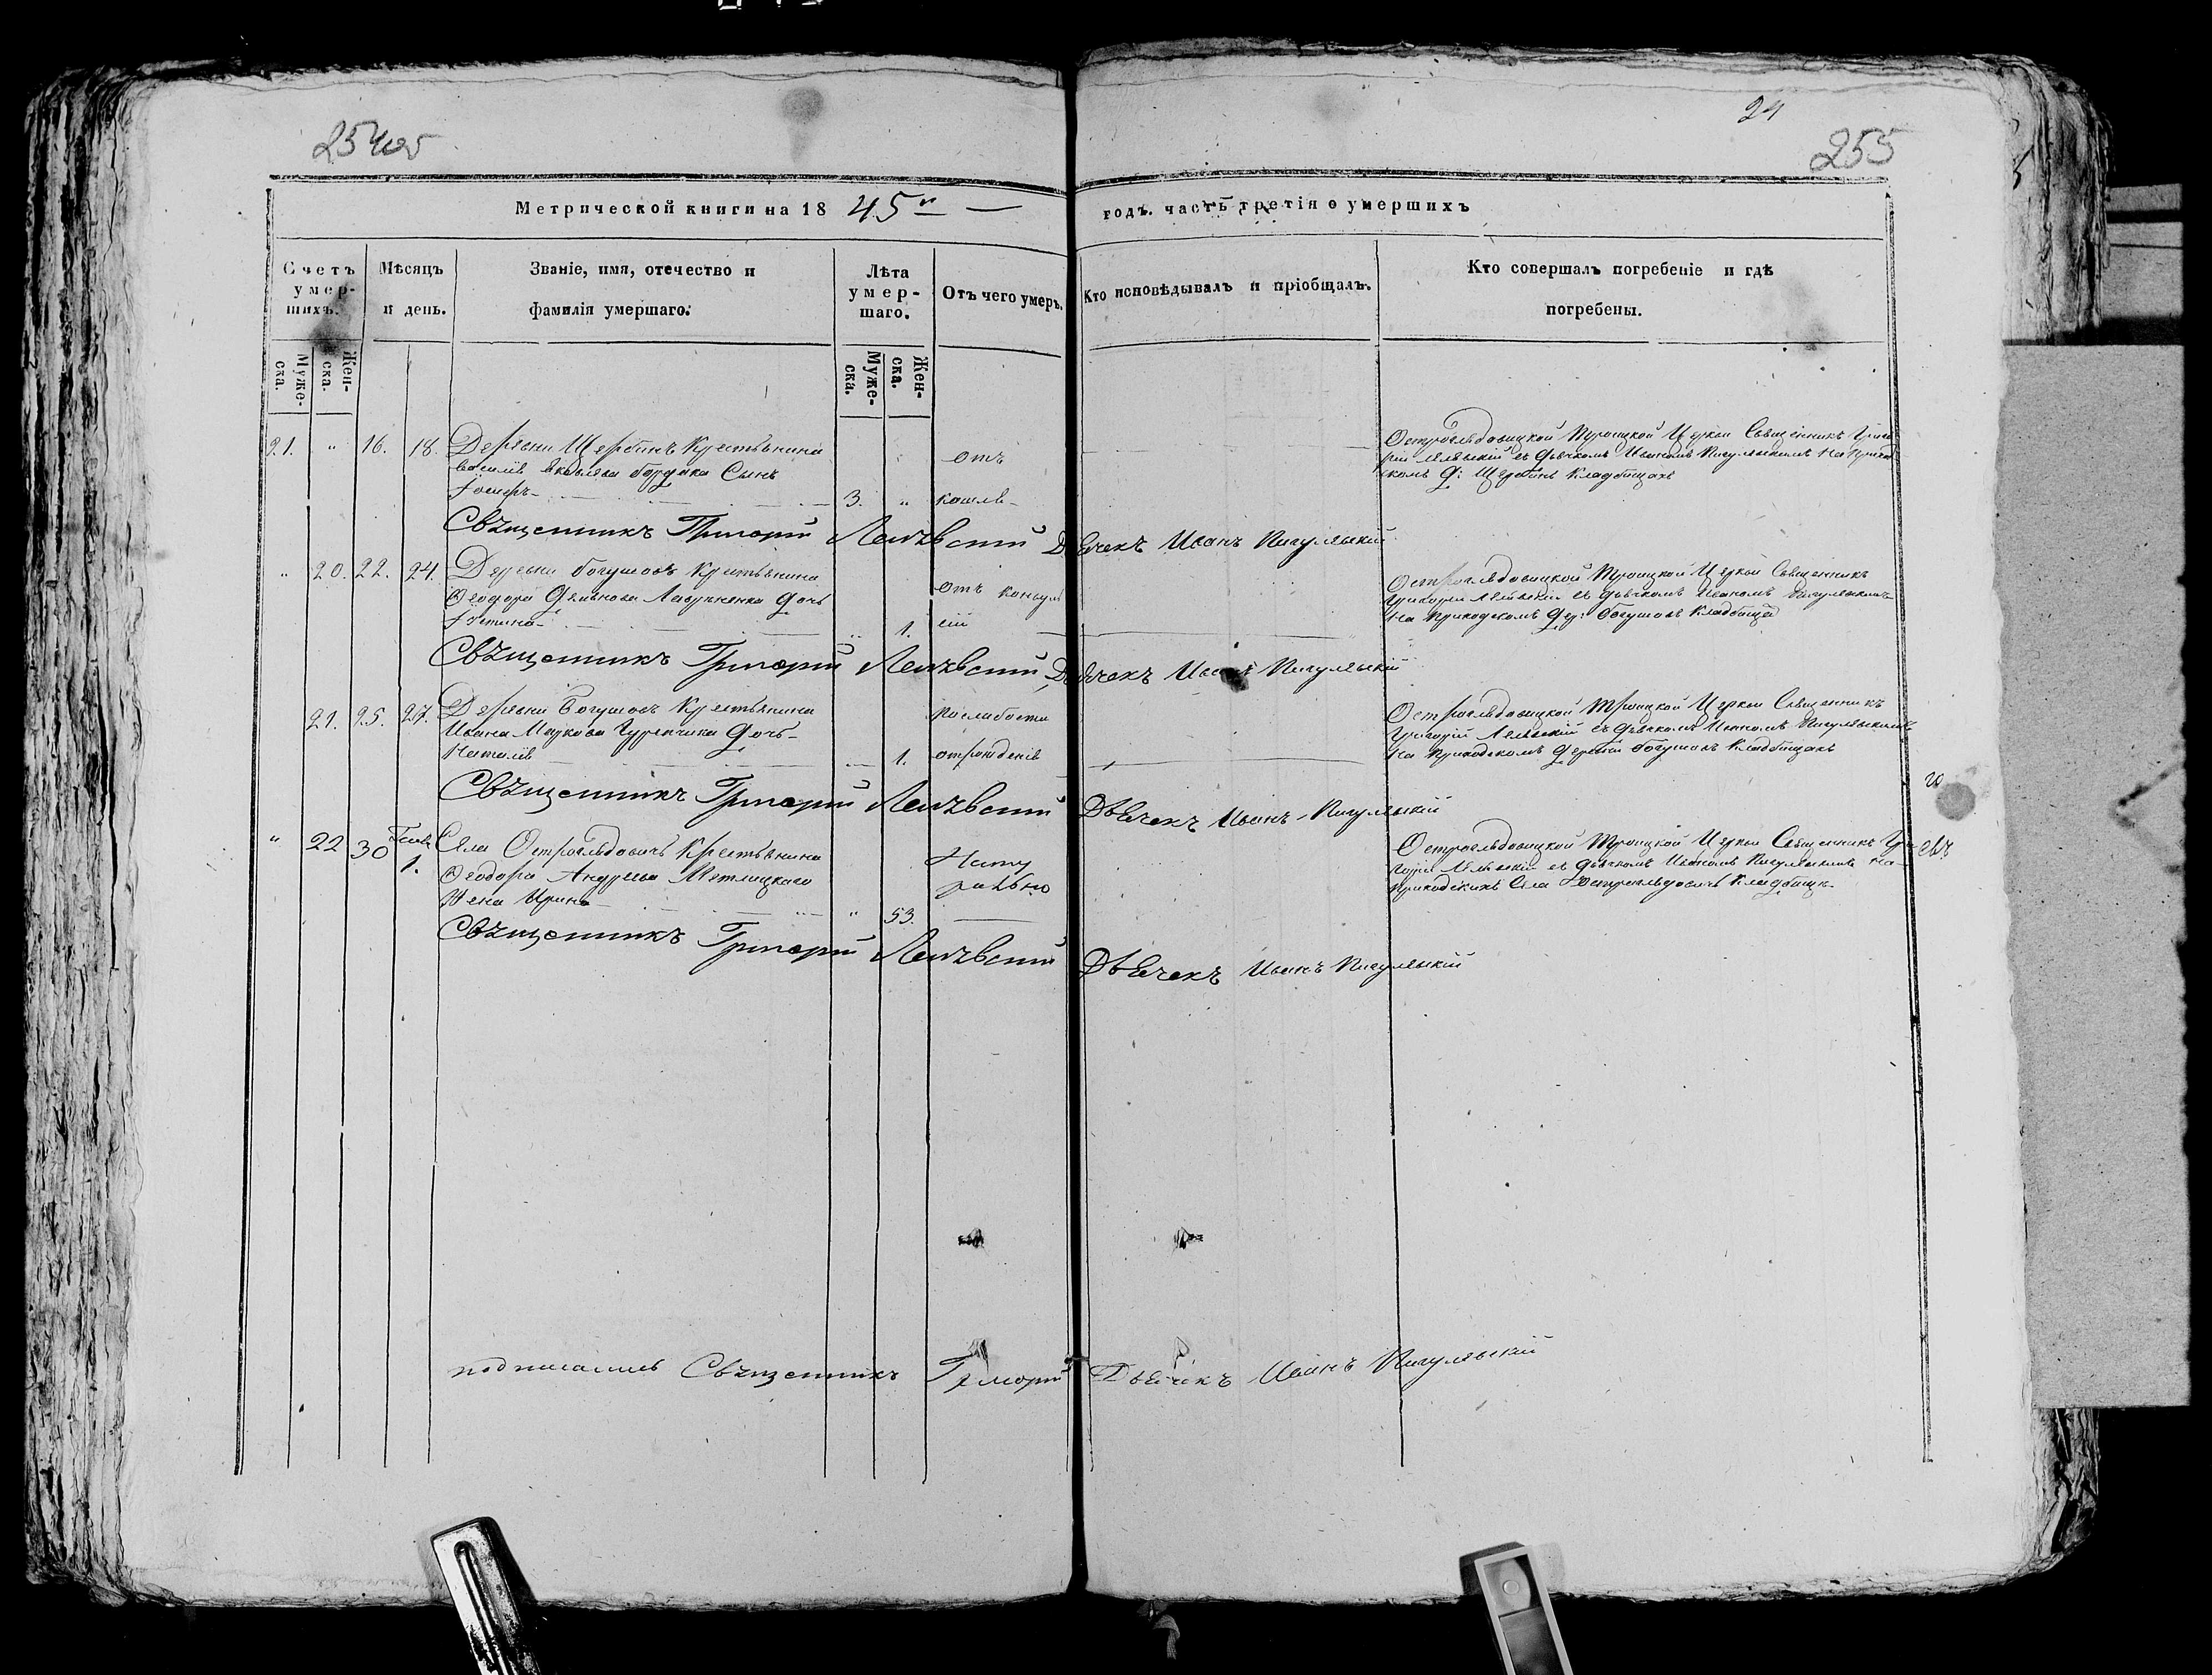 254об
24
255
Метрической книги на 1845й годъ. часть третія о умершихъ
Счетъ умершихъ.
Мѣсяцъ и день.
Званіе, имя, отечество и фамилія умершаго.
Лѣта умершаго.
Отъ чего умеръ.
Кто исповѣдывалъ и пріобщалъ.
Кто совершалъ погребеніе и гдѣ погребены.
Мужеска.
Женска.
Мужеска.
Женска.
21. " 16. 18. Деревни Щербинъ Крестьянина
Василія Яковлева Сынъ
3. " отъ
кашля
Остроглядовицкой Троицкой Церкви Священникъ Григо
рій съ дьячкомъ Иваномъ Пигулевскимъ на приход
скомъ д: Щербинъ Кладбищахъ
Священникъ Григорій Дьячекъ Иванъ Пигулевскій
" 20. 22. 24. Деревни Богушовъ Крестьянина
Ѳеодора Демьянова дочь
Устина " 1. отъ конвул
сіи
Остроглядовицкой Троицкой Церкви Священникъ
Григорій съ дьячкомъ Иваномъ Пигулевскимъ
на приходскомъ дер: Богушовъ Кладбищѣ
Священникъ Григорій Дьячекъ Иванъ Пигулевскій
21. 25. 27. Деревни Богушовъ Крестьянина
Ивана Маркова дочь
Наталія 1. по слабости
отрожденія
Остроглядовицкой Троицкой Церкви Священникъ
Григорій съ дьячкомъ Иваномъ Пигулевскимъ
на приходскомъ деревни Богушовъ Кладбищахъ
Священникъ Григорій Дьячекъ Иванъ Пигулевскій
" 22 30 1. Села Остроглядовичъ Крестьянина
Ѳеодора Андреева Метлицкаго
Жена Ирина " 53. Нату
рально
Остроглядовицкой Троицкой Церкви Священникъ Гри
горій съ дьячкомъ Иваномъ Пигулевскимъ на
приходскихъ Села Остроглядовичъ Кладбищѣ
Священникъ Григорій Дьячекъ Иванъ Пигулевскій
подписались Священникъ Григорій Дьячекъ Иванъ Пигулевскій